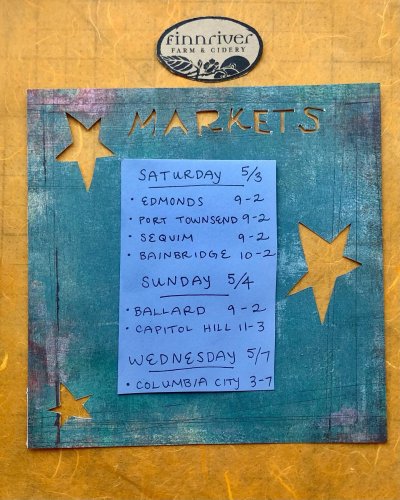 finnriver
FARM & CIDERY
MARKETS
SATURDAY 5/3
• EDMONDS 9-2
• PORT TOWNSEND 9-2
• SEQUIM 9-2
• BAINBRIDGE 10-2
SUNDAY 5/4
• BALLARD 9-2
• CAPITOL HILL 11-3
WEDNESDAY 5/7
• COLUMBIA CITY 3-7